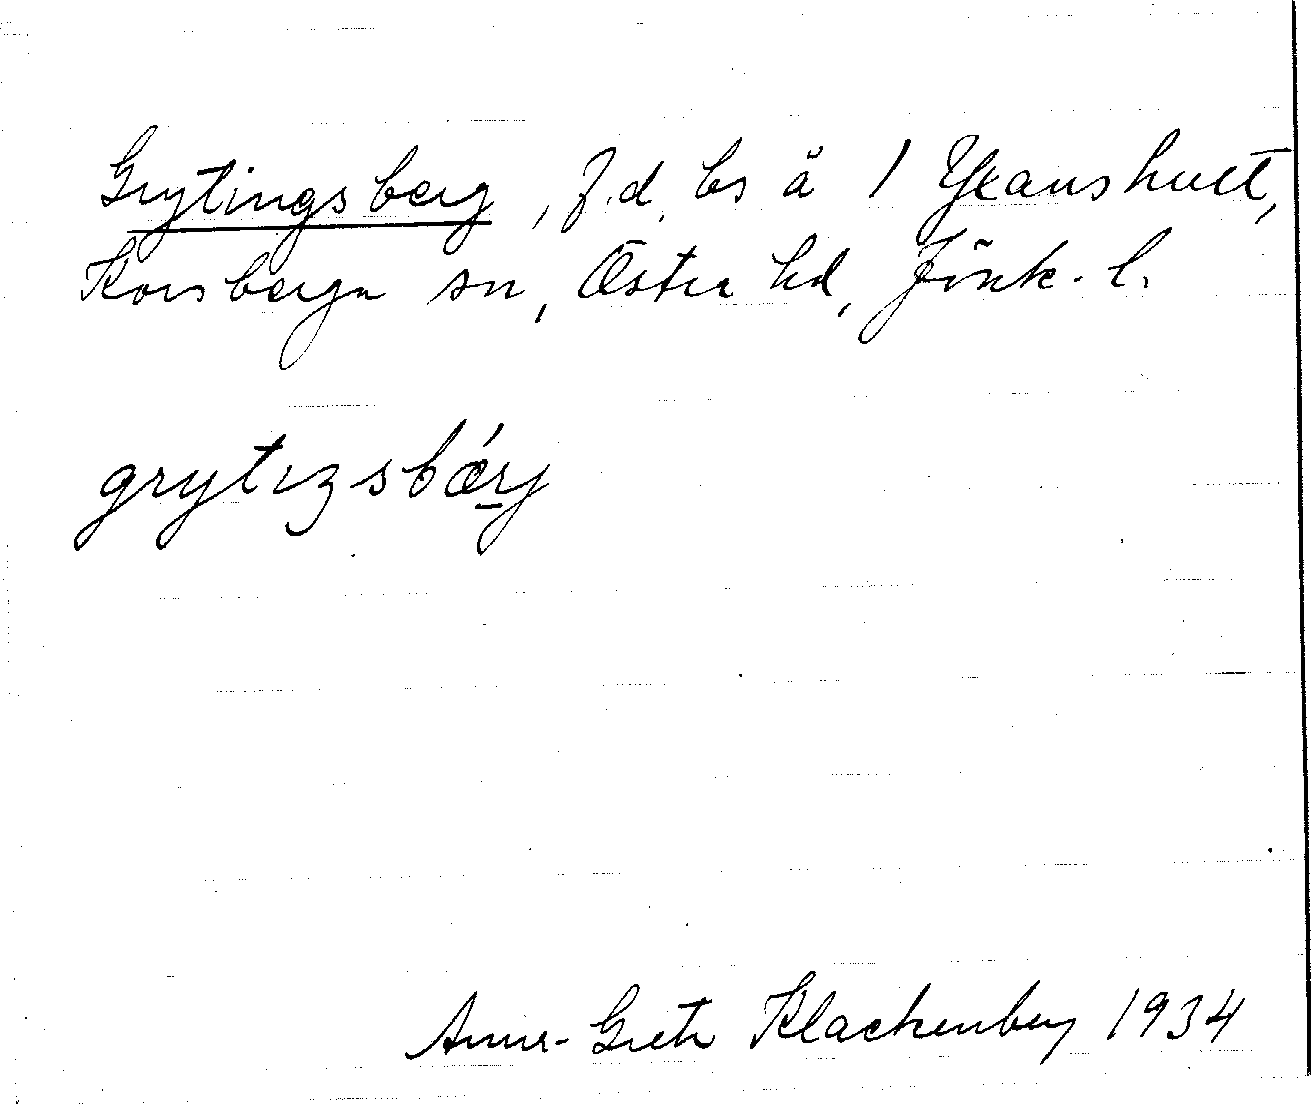 Grytingsberg, f.d. bs å 1 Ykanshult,
Korsberga sn, Östra hd, Jönk. l.
grytıŋsbǽrj
Anna-Greta Klackenberg 1934